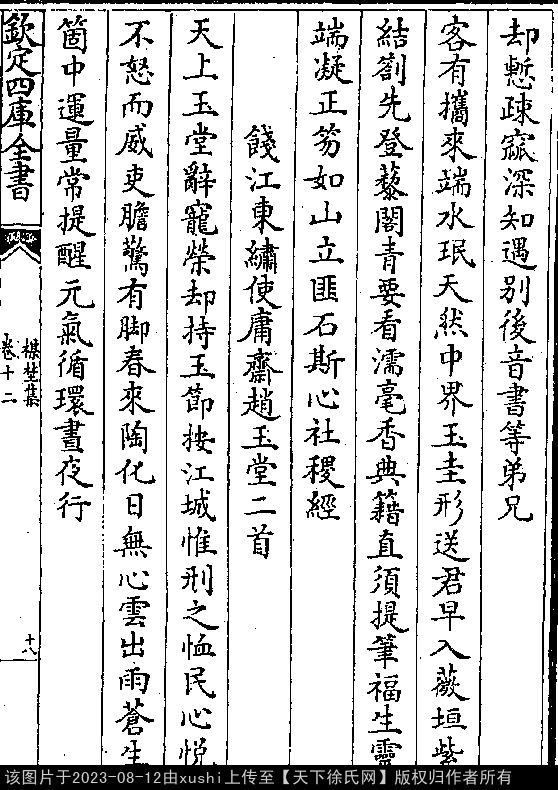 却慙疎寙深知遇別後音書等弟兄
客有攜來端水珉天然中界玉圭形送君早入薇垣紫
結劄先登藜閣青要看濡毫香典籍直須提筆福生靈
端凝正笏如山立匪石斯心社稷經
餞江東繡使庸齋趙玉堂二首
天上玉堂辭寵榮却持玉節按江城惟刑之恤民心悅
不怒而威吏膽驚有脚春來陶化日無心雲出雨蒼生
箇中運量常提醒元氣循環晝夜行
欽定四庫全書
楳埜集
卷十二
十八
该图片于2023-08-12由xushi上传至【天下徐氏网】版权归作者所有